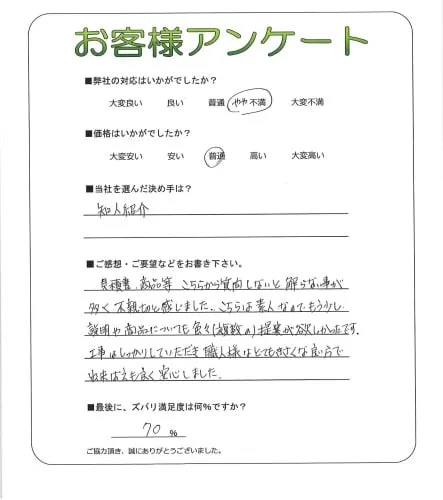 お客様アンケート
■弊社の対応はいかがでしたか？
大変良い 良い 普通 やや不満 大変不満
■価格はいかがでしたか？
大変安い 安い 普通 高い 大変高い
■当社を選んだ決め手は？
知人紹介
■ご感想・ご要望などをお書き下さい。
見積書、商品等 こちらから質問しないと解らない事が
多く 不親切と感じました。こちらは素人なのでもう少し
説明や商品についても色々(複数の)提案が欲しかったです。
工事はしっかりしていただき 職人様はとてもきさくな良い方で
出来ばえも良く安心しました。
■最後に、ズバリ満足度は何％ですか？
70 ％
ご協力頂き、誠にありがとうございました。